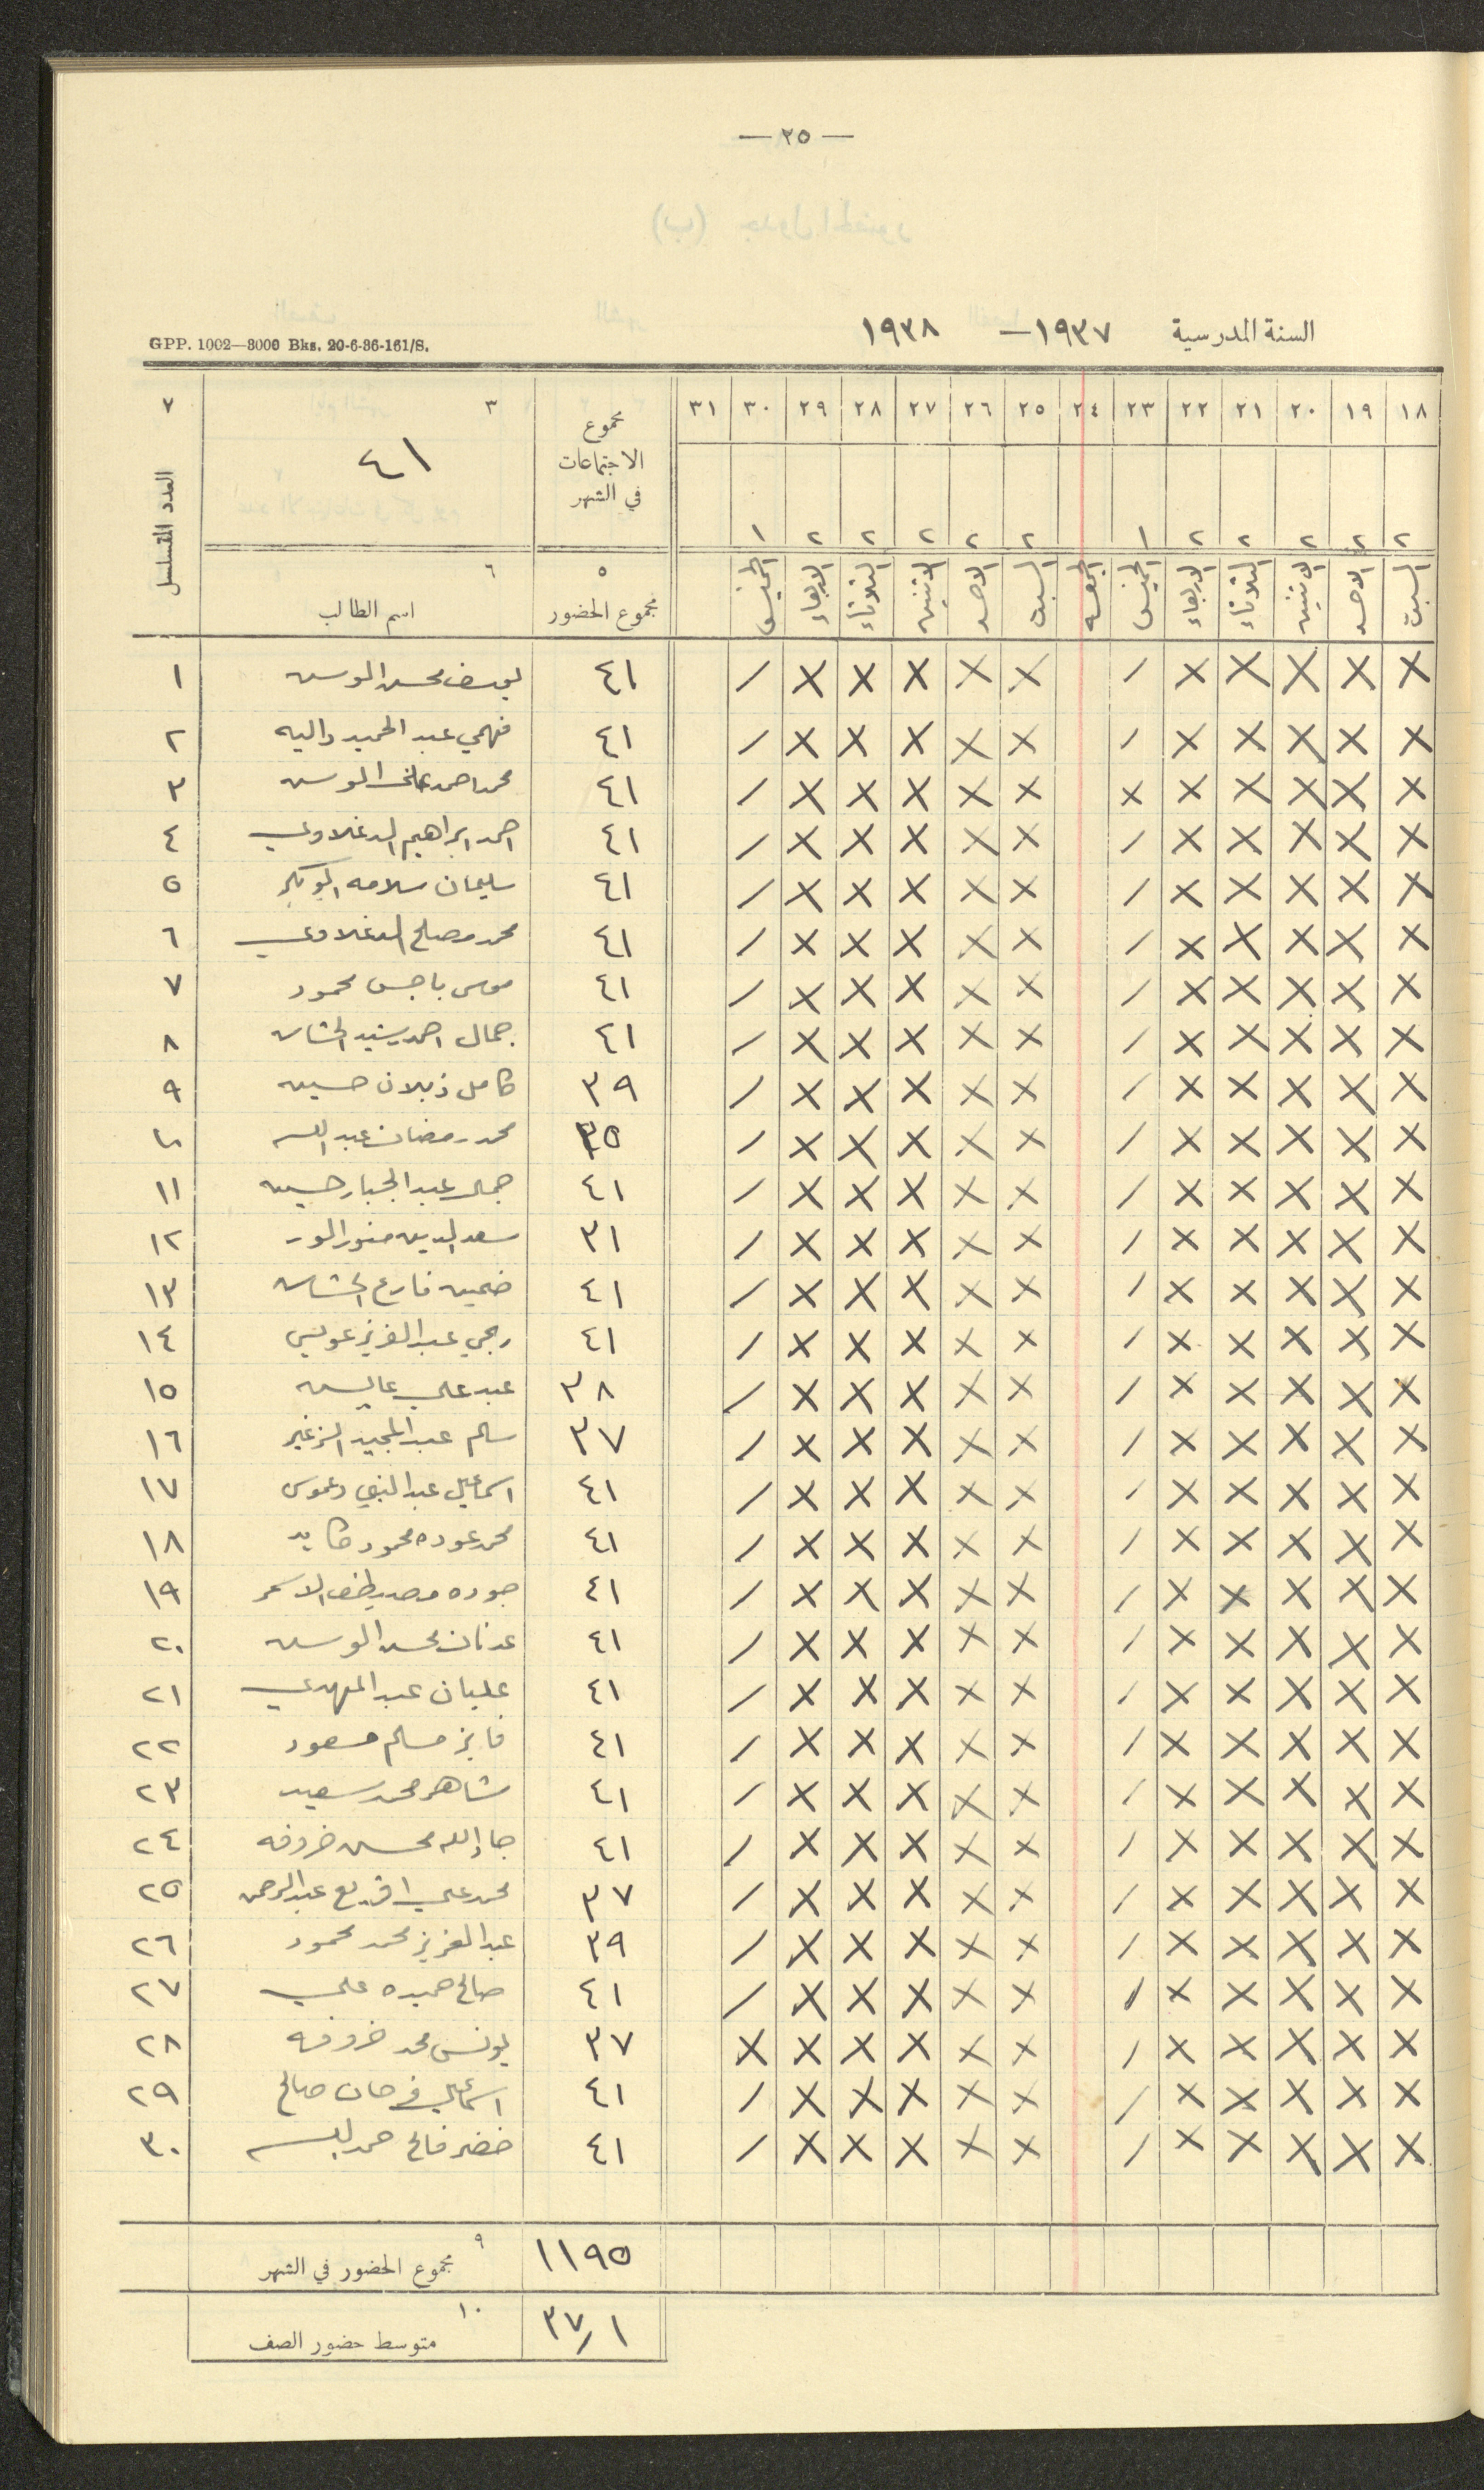 — ٢٥ —
السنة المدرسية ١٩٣٧ — ١٩٣٨
GPP. 1002—3000 Bks. 20-6-36-161/S.
١٨ ١٩ ٢٠ ٢١ ٢٢ ٢٣ ٢٤ ٢٥ ٢٦ ٢٧ ٢٨ ٢٩ ٣٠ ٣١ مجموع الاجتماعات في الشهر ٣ ٤١ ٧ العدد المتسلسل
٢ ٢ ٢ ٢ ٢ ١ ٢ ٢ ٢ ٢ ٢ ١
السبت الاحد الاثنين الثلاثاء الاربعاء الخميس الجمعه السبت الاحد الاثنين الثلاثاء الاربعاء الخميس ٥ مجموع الحضور ٦ اسم الطالب
X X X X X / X X X X X / ٤١ يوسف محسن الموسى ١
X X X X X / X X X X X / ٤١ فهمي عبد الحميد داليه ٢
X X X X X X X X X X X / ٤١ محمد احمد الموسى ٣
X X X X X / X X X X X / ٤١ احمد ابراهيم الدغلاوي ٤
X X X X X / X X X X X / ٤١ سليمان سلامه ٥
X X X X X / X X X X X / ٤١ محمد مصلح الدغلاوي ٦
X X X X X / X X X X X / ٤١ موسى باجس محمود ٧
X X X X X / X X X X X / ٤١ جمال احمد رشيد الحشاش ٨
X X X X X / X X X X X / ٣٩ كامل ذبلان حسين ٩
X X X X X / X X X X X / ٣٥ محمد رمضان عبد الله ١٠
X X X X X / X X X X X / ٤١ جمال عبد الجبار حسين ١١
X X X X X / X X X X X / ٣١ سعد الدين منور ١٢
X X X X X / X X X X X / ٤١ فارع الحشاش ١٣
X X X X X / X X X X X / ٤١ ربحي عبد العزيز عويس ١٤
X X X X X / X X X X X / ٣٨ عبد علي ١٥
X X X X X / X X X X X / ٣٧ سالم عبد المجيد الزغير ١٦
X X X X X / X X X X X / ٤١ اسماعيل عبد النبي دعموس ١٧
X X X X X / X X X X X / ٤١ محمد عوده محمود كايد ١٨
X X X X X / X X X X X / ٤١ جوده مصطفى الاسمر ١٩
X X X X X / X X X X X / ٤١ عدنان محسن الموسى ٢٠
X X X X X / X X X X X / ٤١ عليان عبد المهدي ٢١
X X X X X / X X X X X / ٤١ فايز مسلم مسعود ٢٢
X X X X X / X X X X X / ٤١ مشاهر محمد سعيد ٢٣
X X X X X / X X X X X / ٤١ جاد الله محسن خروفه ٢٤
X X X X X / X X X X X / ٣٧ محمد علي عبد الرحمن ٢٥
X X X X X / X X X X X / ٣٩ عبد العزيز محمد محمود ٢٦
X X X X X / X X X X X / ٤١ صالح حميده علي ٢٧
X X X X X / X X X X X X ٣٧ يونس محمد خروفه ٢٨
X X X X X / X X X X X / ٤١ اسماعيل فرحان صالح ٢٩
X X X X X / X X X X X / ٤١ خضر فالح حمد الله ٣٠
١١٩٥ ٩ مجموع الحضور في الشهر
٣٧/١ ١٠ متوسط حضور الصف